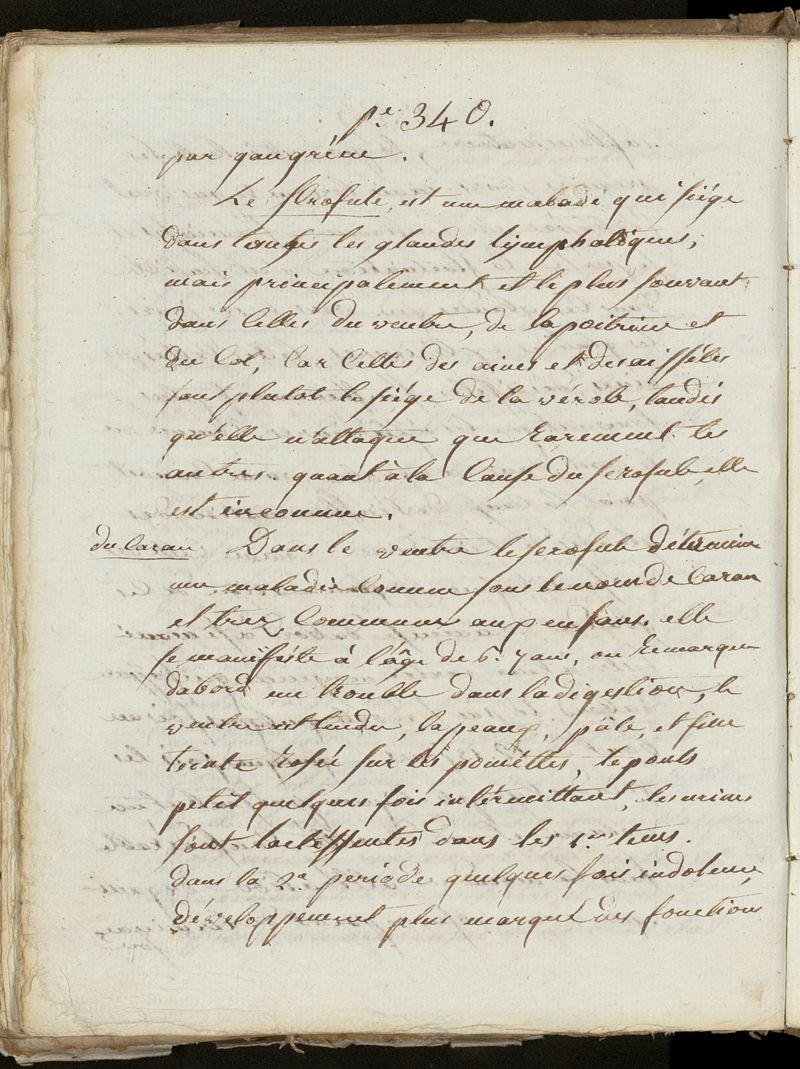 p.e 340.
par gangréne.
Le scrofule, est une malade qui siége
dans toutes les glandes lymphatiques,
mais principalement et le plus souvant
dans celles du ventre, de la poitrine et
du col, car celles des aines et des aisséles
sont plutot le siége de la vérole, tandis
qu'elle n'attaque que rarement les
autres. quant à la cause du scrofule, elle
est inconnue.
du carau Dans le ventre le scrofule détermine
une maladie connue sous le nom de carau
et trez commune aux enfans. elle
se manifeste à l'âge de 6. 7 ans, on remarque
dabord un trouble dans la digestion, le
ventre est tendu, la peau, pâle, et fine
teinte rosée sur les pométtes, le pouls
petit quelques fois intérmittant, les urines
sont lactéssentes dans les 1.er tems.
dans la 2.e periode quelques fois indoleur,
développement plus marqué des fonctions